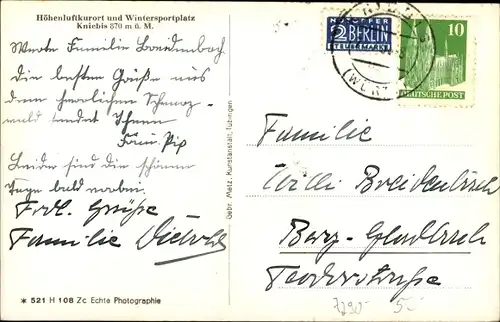 Höhenluftkurort und Wintersportplatz
Kniebis 870 m ü. M.
Werte Familie Breidenbach
die besten Grüße aus
dem herrlichen Schwarz-
wald sendet Ihnen
Fam. Pix
Leider sind die schönen
Tage bald vorbei.
Frdl. Grüße
Familie
✶ 521 H 108 Zc Echte Photographie
Gebr. Metz, Kunstanstalt, Tübingen
NOTOPFER
2 BERLIN
STEUERMARKE
10
DEUTSCHE POST
Familie
Willi Breidenbach
Berg-Gladbach
Feodorstraße
7290
5.-